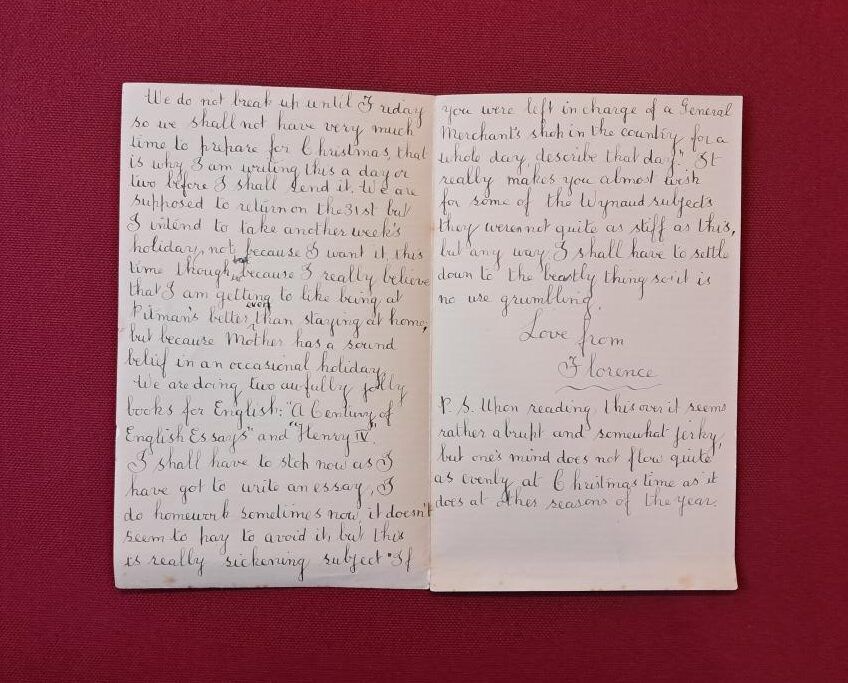 We do not break up until Friday
so we shall not have very much
time to prepare for Christmas, that
is why I am writing this a day or
two before I shall send it. We are
supposed to return on the 31st but
I intend to take another week's
holiday, not because I want it, this
time though, but because I really believe
that I am getting to like being at
Pitman's better even than staying at home,
but because Mother has a sound
belief in an occasional holiday.
We are doing two awfully jolly
books for English: "A Century of
English Essays" and "Henry IV".
I shall have to stop now as I
have got to write an essay, I
do homework sometimes now, it doesn't
seem to pay to avoid it, but this
is really sickening subject "If
you were left in charge of a General
Merchant's shop in the country for a
whole day, describe that day." It
really makes you almost wish
for some of the Wynaud subjects
they were not quite as stiff as this,
but any way I shall have to settle
down to the beastly thing so it is
no use grumbling.
Love from
Florence
P.S. Upon reading this over it seems
rather abrupt and somewhat jerky,
but one's mind does not flow quite
as evenly at Christmas time as it
does at other seasons of the year.